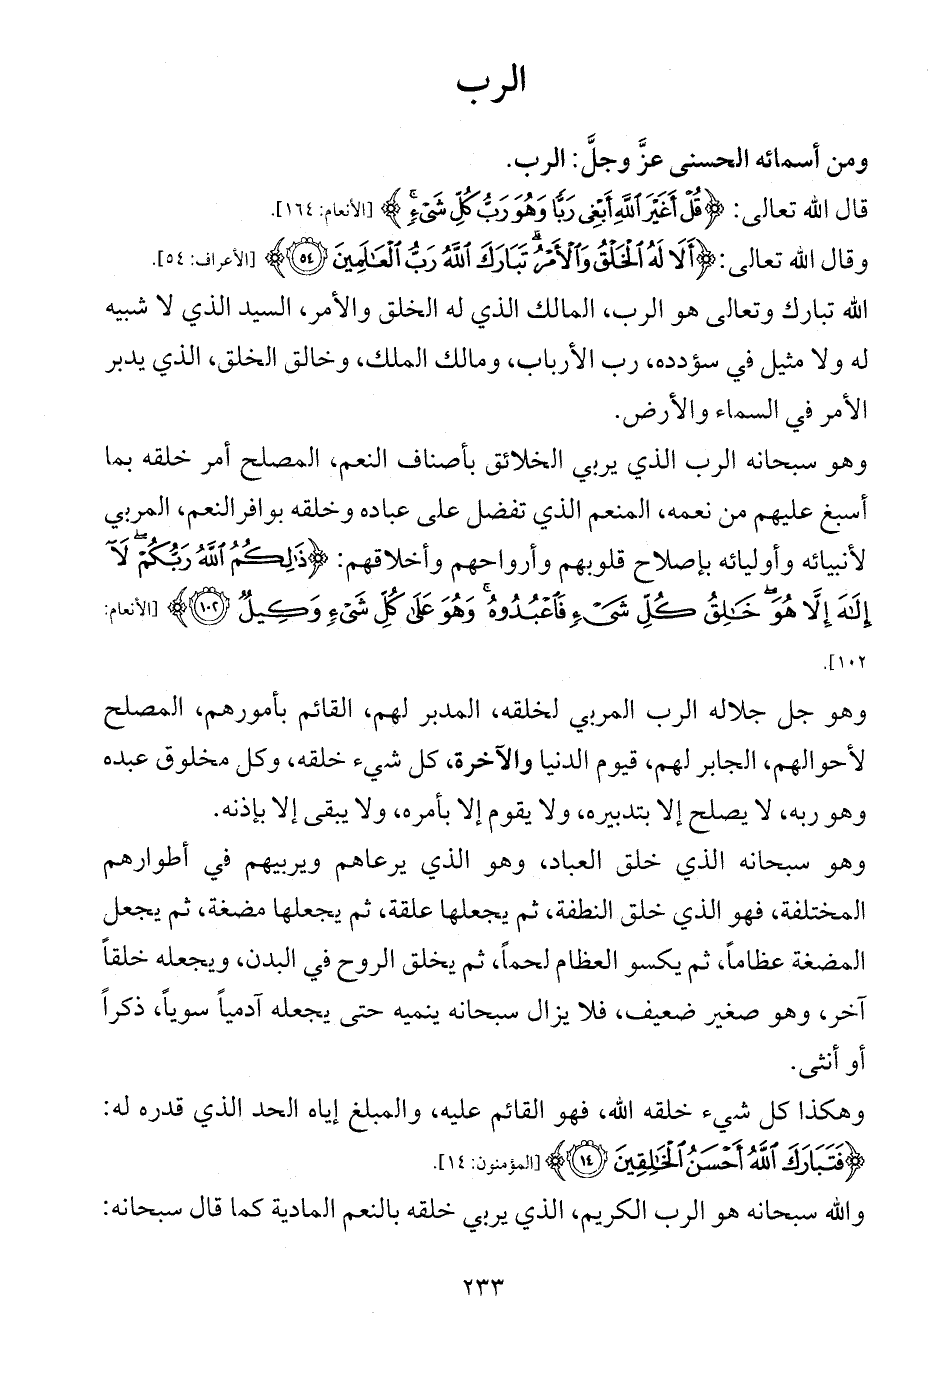 الرب
ومن أسمائه الحسنى عزَّ وجلَّ: الرب.
قال الله تعالى: ﴿قُلْ أَغَيْرَ ٱللَّهِ أَبْغِى رَبًّا وَهُوَ رَبُّ كُلِّ شَىْءٍ ۚ﴾ [الأنعام: ١٦٤].
وقال الله تعالى: ﴿أَلَا لَهُ ٱلْخَلْقُ وَٱلْأَمْرُ ۗ تَبَارَكَ ٱللَّهُ رَبُّ ٱلْعَـٰلَمِينَ ۝٥٤﴾ [الأعراف: ٥٤].
الله تبارك وتعالى هو الرب، المالك الذي له الخلق والأمر، السيد الذي لا شبيه
له ولا مثيل في سؤدده، رب الأرباب، ومالك الملك، وخالق الخلق، الذي يدبر
الأمر في السماء والأرض.
وهو سبحانه الرب الذي يربي الخلائق بأصناف النعم، المصلح أمر خلقه بما
أسبغ عليهم من نعمه، المنعم الذي تفضل على عباده وخلقه بوافر النعم، المربي
لأنبيائه وأوليائه بإصلاح قلوبهم وأرواحهم وأخلاقهم: ﴿ذَٰلِكُمُ ٱللَّهُ رَبُّكُمْ ۖ لَآ
إِلَـٰهَ إِلَّا هُوَ ۖ خَـٰلِقُ كُلِّ شَىْءٍ فَٱعْبُدُوهُ ۚ وَهُوَ عَلَىٰ كُلِّ شَىْءٍ وَكِيلٌ ۝١٠٢﴾ [الأنعام:
١٠٢].
وهو جل جلاله الرب المربي لخلقه، المدبر لهم، القائم بأمورهم، المصلح
لأحوالهم، الجابر لهم، قيوم الدنيا والآخرة، كل شيء خلقه، وكل مخلوق عبده
وهو ربه، لا يصلح إلا بتدبيره، ولا يقوم إلا بأمره، ولا يبقى إلا بإذنه.
وهو سبحانه الذي خلق العباد، وهو الذي يرعاهم ويربيهم في أطوارهم
المختلفة، فهو الذي خلق النطفة، ثم يجعلها علقة، ثم يجعلها مضغة، ثم يجعل
المضغة عظاماً، ثم يكسو العظام لحماً، ثم يخلق الروح في البدن، ويجعله خلقاً
آخر، وهو صغير ضعيف، فلا يزال سبحانه ينميه حتى يجعله آدمياً سوياً، ذكراً
أو أنثى.
وهكذا كل شيء خلقه الله، فهو القائم عليه، والمبلغ إياه الحد الذي قدره له:
﴿فَتَبَارَكَ ٱللَّهُ أَحْسَنُ ٱلْخَـٰلِقِينَ ۝١٤﴾ [المؤمنون: ١٤].
والله سبحانه هو الرب الكريم، الذي يربي خلقه بالنعم المادية كما قال سبحانه:
٢٣٣